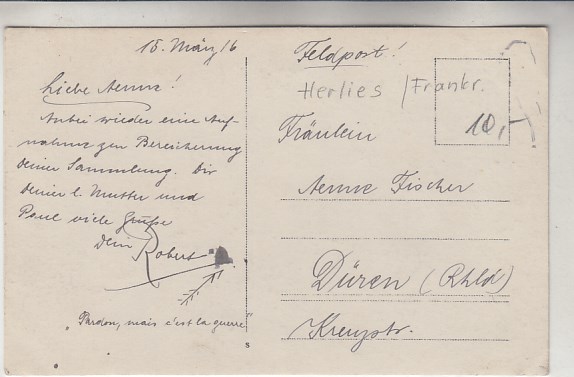 18. März 16
Liebe Aenne!
Anbei wieder eine Auf-
nahme zur Bereicherung
Deiner Sammlung. Dir
Deiner l. Mutter und
Paul viele Grüße
Dein Robert
"Pardon, mais c'est la guerre"
Feldpost!
Herlies / Frankr.
10,-
Fräulein
Aenne Fischer
Düren (Rhld)
Kreuzstr.
s